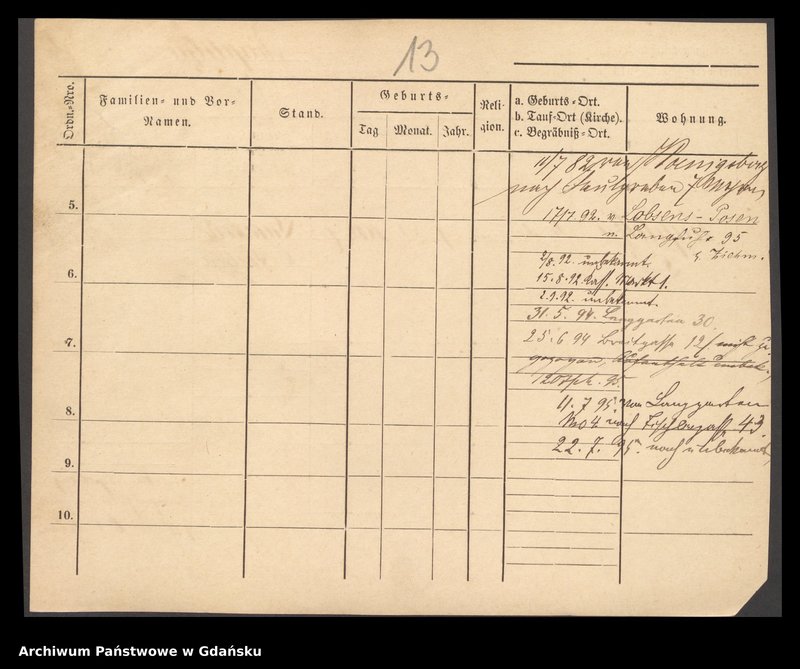 13
Ordn.-Nro.
Familien- und Vor-
Namen.
Stand.
Geburts-
Tag
Monat.
Jahr.
Reli-
gion.
a. Geburts-Ort.
b. Tauf-Ort (Kirche).
c. Begräbniß-Ort.
Wohnung.
11/7 82 von Koenigsberg
nach
5.
17/7. 92. v. Lobsens-Posen
n. Langfuhr 95
b. Ziehm.
6.
2/8. 92. unbekannt.
15.8.92 Kass. Markt 1.
2.9.92. unbekannt.
31. 5. 94. Langgarten 30
7.
25. 6 94 Breitgasse 121 nicht zu-
gezogen, Aufenthalt unbek.,
95.
8.
11. 7 95. von Langgarten
nach Tischlergasse 43.
22. 7. 95. nach unbekannt,
9.
10.
Archiwum Państwowe w Gdańsku